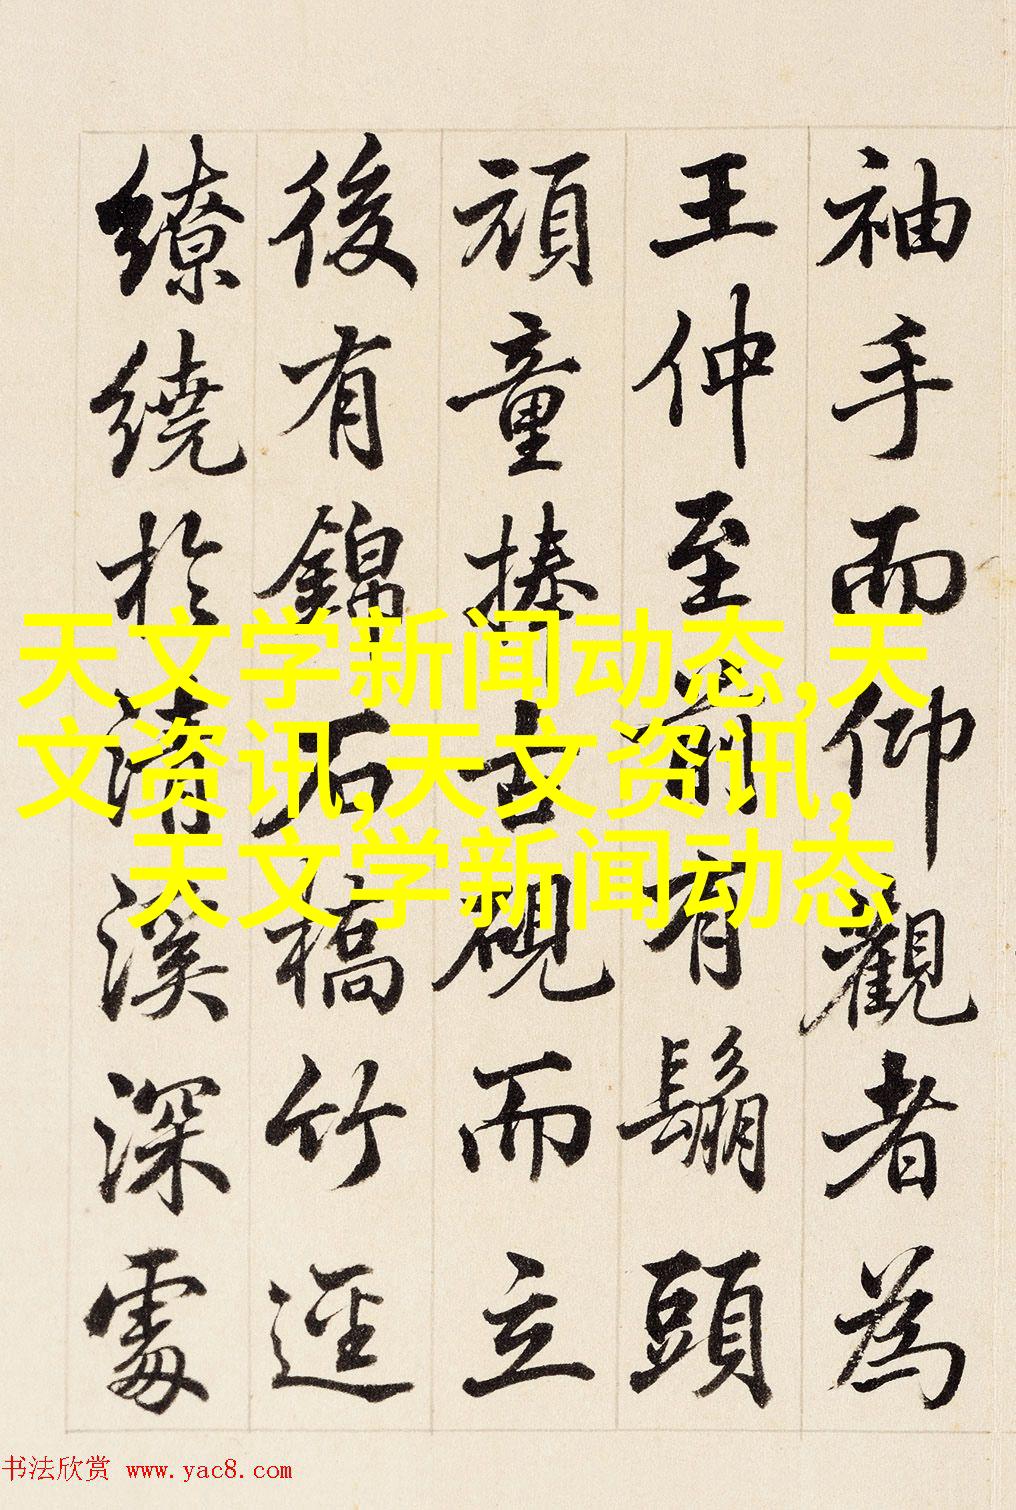 袖手而仰觀者為
王仲至前有鬅頭
頑童捧古硯而立
後有錦石橋竹逕
繚繞於清溪深處
天文学新闻动态,天
文资讯,天文资讯,
天文学新闻动态
书法欣赏 www.yac8.com